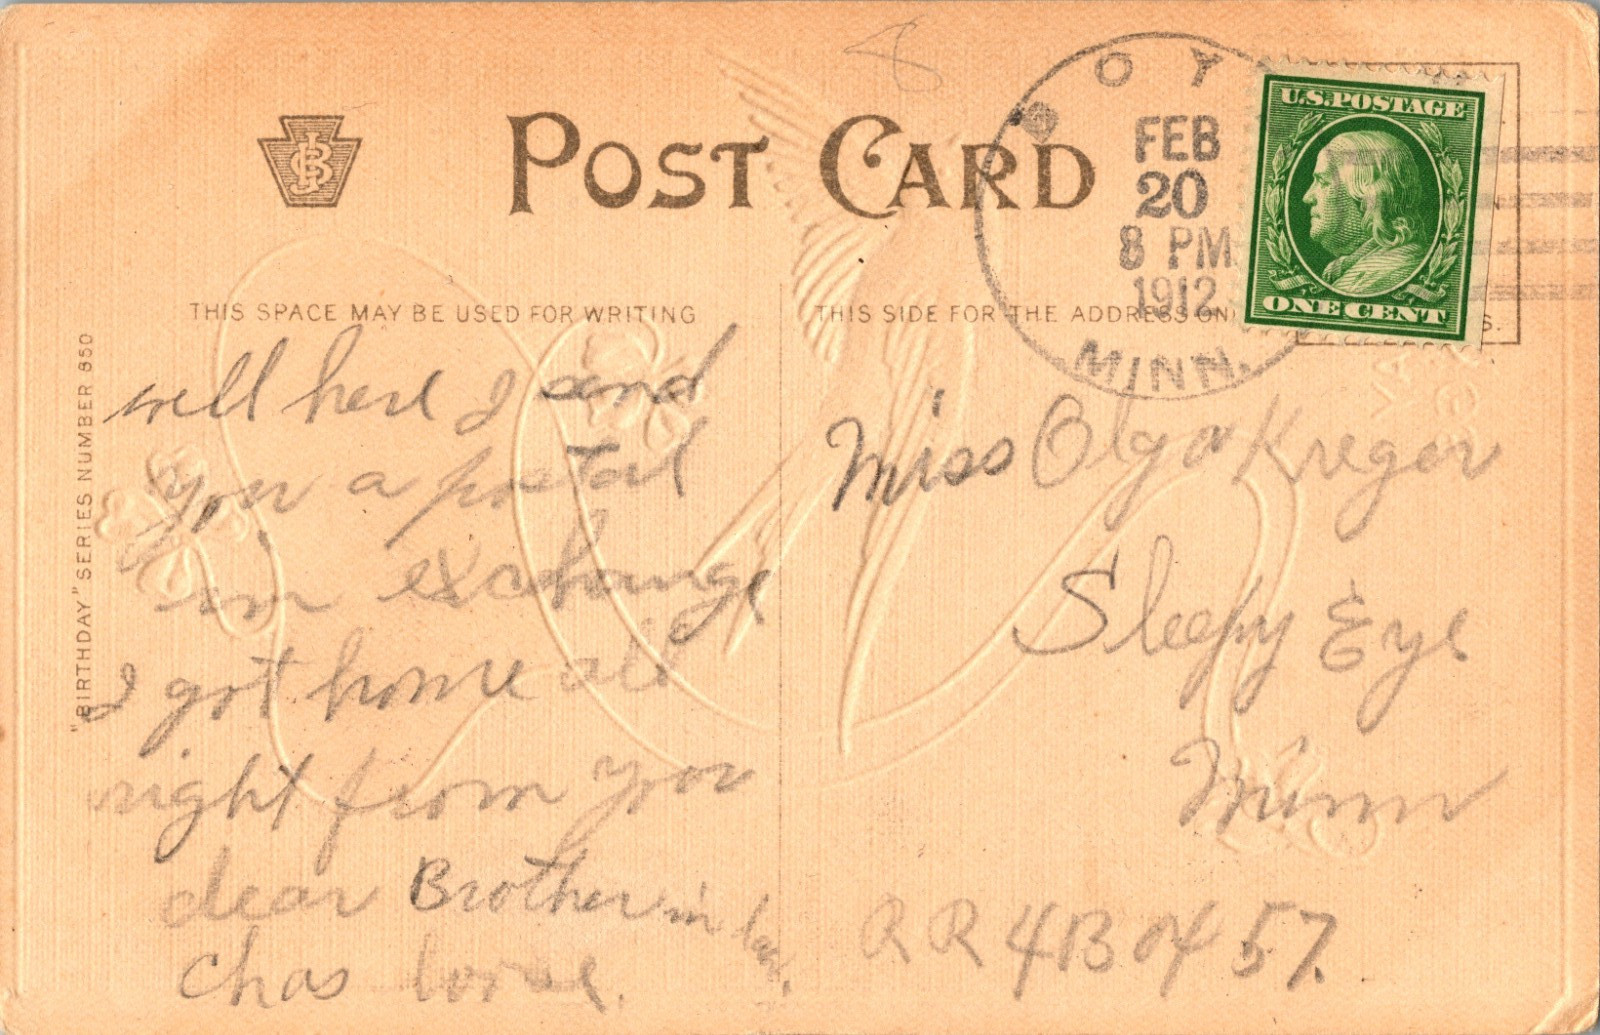 POST CARD
BOY
FEB
20
8 PM
1912
MINN.
U.S. POSTAGE
ONE CENT
THIS SPACE MAY BE USED FOR WRITING
THIS SIDE FOR THE ADDRESS
"BIRTHDAY" SERIES NUMBER 850
well here I send
you a postal
in exchange
I got home all
right from your
dear Brother in law.
Chas
Miss Olga Kreger
Sleepy Eye
Minn
RR 4 B of 57.